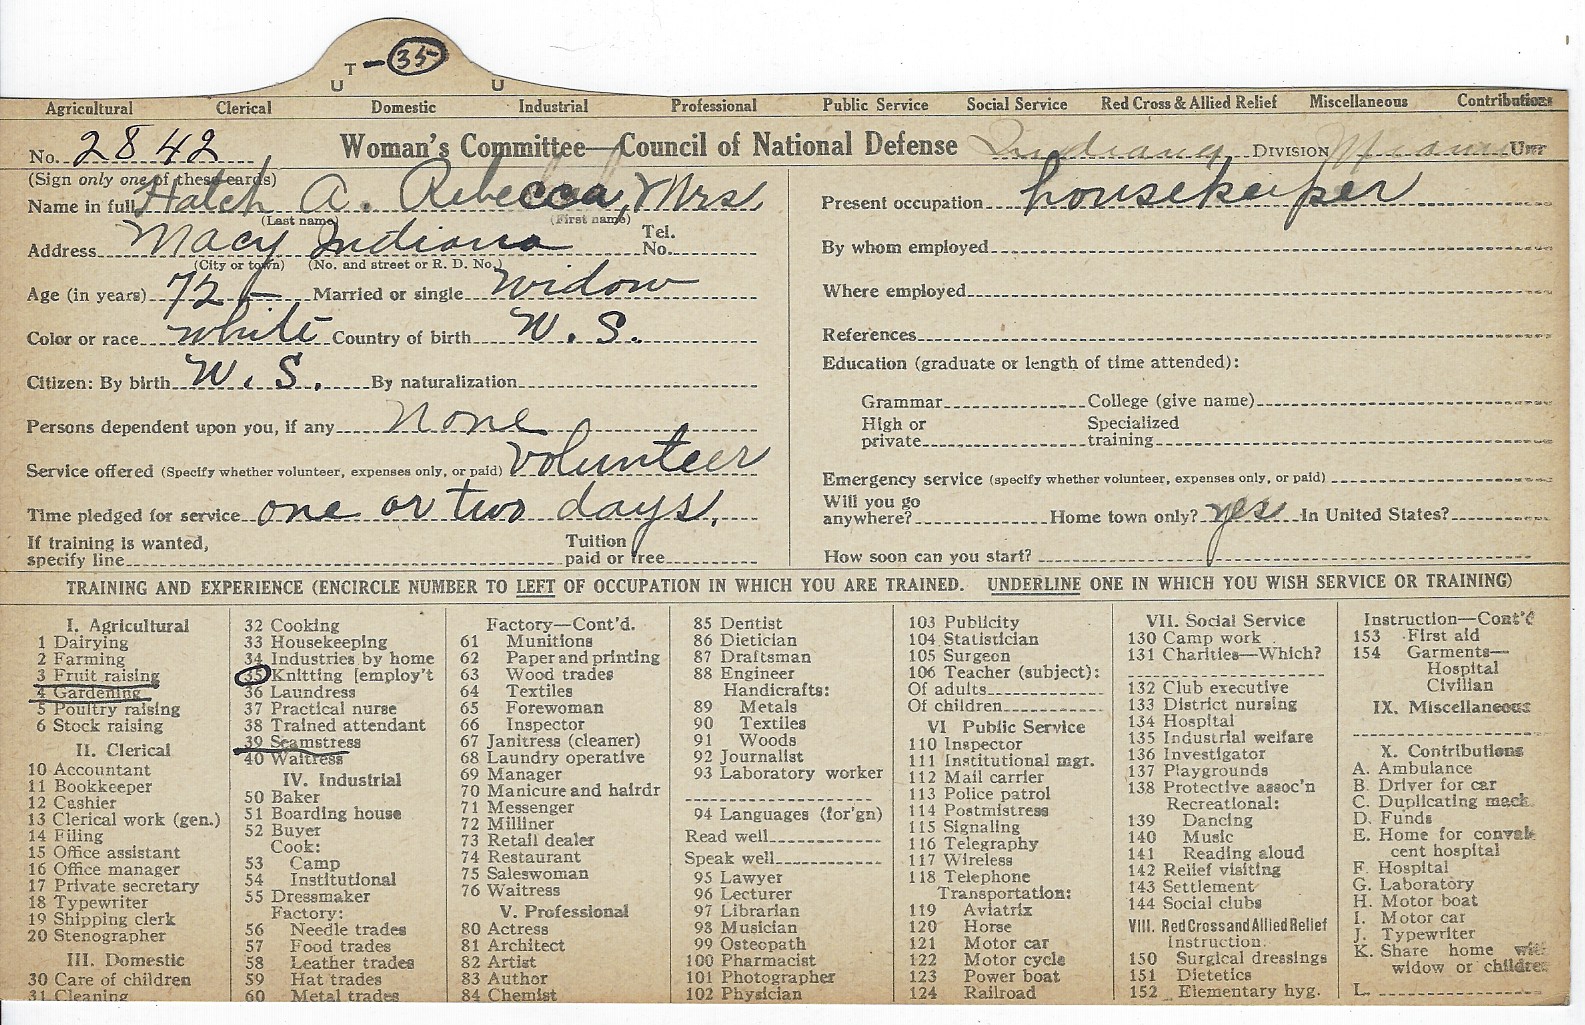 T-35
U U
Agricultural Clerical Domestic Industrial Professional Public Service Social Service Red Cross & Allied Relief Miscellaneous Contributions
No. 2842 Woman's Committee—Council of National Defense Indiana DIVISION Miami UNIT
(Sign only one of these cards)
Name in full Hatch A. Rebecca, Mrs
(Last name) (First name)
Address Macy Indiana Tel. No.
(City or town) (No. and street or R. D. No.)
Age (in years) 72 – Married or single Widow
Color or race white Country of birth U. S.
Citizen: By birth U. S. By naturalization
Persons dependent upon you, if any none
Service offered (Specify whether volunteer, expenses only, or paid) volunteer
Time pledged for service one or two days.
If training is wanted, specify line Tuition paid or free
Present occupation housekeiper
By whom employed
Where employed
References
Education (graduate or length of time attended):
Grammar College (give name)
High or private Specialized training
Emergency service (specify whether volunteer, expenses only, or paid)
Will you go anywhere? Home town only? yes In United States?
How soon can you start?
TRAINING AND EXPERIENCE (ENCIRCLE NUMBER TO LEFT OF OCCUPATION IN WHICH YOU ARE TRAINED. UNDERLINE ONE IN WHICH YOU WISH SERVICE OR TRAINING)
I. Agricultural
1 Dairying
2 Farming
3 Fruit raising
4 Gardening
5 Poultry raising
6 Stock raising
II. Clerical
10 Accountant
11 Bookkeeper
12 Cashier
13 Clerical work (gen.)
14 Filing
15 Office assistant
16 Office manager
17 Private secretary
18 Typewriter
19 Shipping clerk
20 Stenographer
III. Domestic
30 Care of children
31 Cleaning
32 Cooking
33 Housekeeping
34 Industries by home
35 Knitting [employ't
36 Laundress
37 Practical nurse
38 Trained attendant
39 Seamstress
40 Waitress
IV. Industrial
50 Baker
51 Boarding house
52 Buyer
Cook:
53 Camp
54 Institutional
55 Dressmaker
Factory:
56 Needle trades
57 Food trades
58 Leather trades
59 Hat trades
60 Metal trades
Factory—Cont'd.
61 Munitions
62 Paper and printing
63 Wood trades
64 Textiles
65 Forewoman
66 Inspector
67 Janitress (cleaner)
68 Laundry operative
69 Manager
70 Manicure and hairdr
71 Messenger
72 Milliner
73 Retail dealer
74 Restaurant
75 Saleswoman
76 Waitress
V. Professional
80 Actress
81 Architect
82 Artist
83 Author
84 Chemist
85 Dentist
86 Dietician
87 Draftsman
88 Engineer
Handicrafts:
89 Metals
90 Textiles
91 Woods
92 Journalist
93 Laboratory worker
94 Languages (for'gn)
Read well
Speak well
95 Lawyer
96 Lecturer
97 Librarian
98 Musician
99 Osteopath
100 Pharmacist
101 Photographer
102 Physician
103 Publicity
104 Statistician
105 Surgeon
106 Teacher (subject):
Of adults
Of children
VI Public Service
110 Inspector
111 Institutional mgr.
112 Mail carrier
113 Police patrol
114 Postmistress
115 Signaling
116 Telegraphy
117 Wireless
118 Telephone
Transportation:
119 Aviatrix
120 Horse
121 Motor car
122 Motor cycle
123 Power boat
124 Railroad
VII. Social Service
130 Camp work
131 Charities—Which?
132 Club executive
133 District nursing
134 Hospital
135 Industrial welfare
136 Investigator
137 Playgrounds
138 Protective assoc'n
Recreational:
139 Dancing
140 Music
141 Reading aloud
142 Relief visiting
143 Settlement
144 Social clubs
VIII. Red Cross and Allied Relief
Instruction.
150 Surgical dressings
151 Dietetics
152 Elementary hyg.
Instruction—Cont'd
153 First aid
154 Garments—
Hospital
Civilian
IX. Miscellaneous
X. Contributions
A. Ambulance
B. Driver for car
C. Duplicating mach.
D. Funds
E. Home for convales-
cent hospital
F. Hospital
G. Laboratory
H. Motor boat
I. Motor car
J. Typewriter
K. Share home with
widow or children
L.